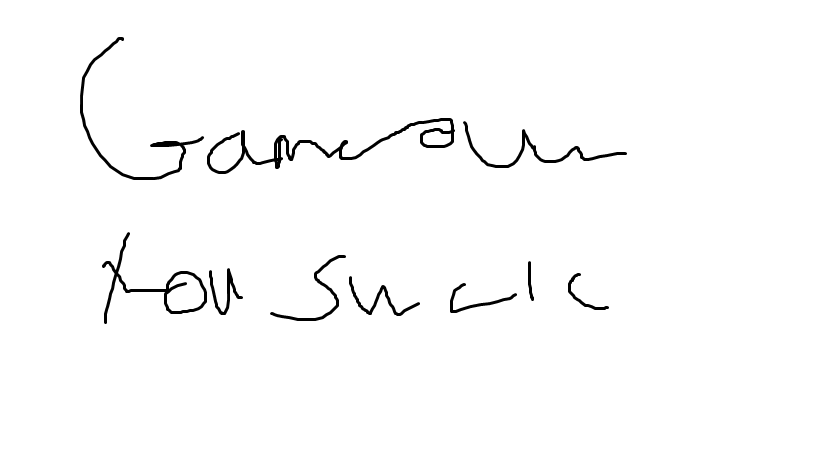 Game over
You suck